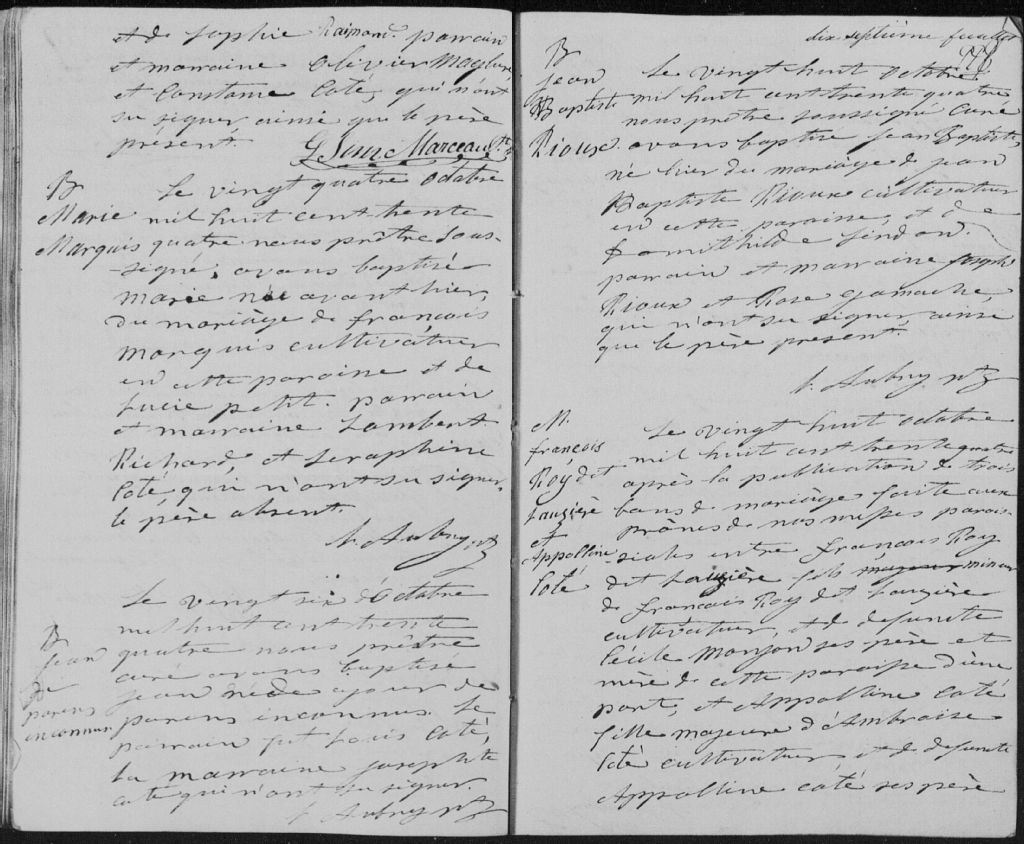 et de Sophie Raimond. parrain
et marraine Olivier Maglore
et Constance Coté, qui n'ont
su signer ainsi que le père
présent.
Marceau
B
Marie
Marquis
Le vingt quatre Octobre
mil huit cent trente
quatre nous prêtre sous-
-signé, avons baptisé
marie née avant hier,
du mariage de francois
Marquis cultivateur
en cette paroisse et de
Lucie petit. parrain
et marraine Lambert
Richard, et Seraphine
Coté qui n'ont su signer.
le père absent.
Aubry ptr
B
Jean
de
parens
inconnus
Le vingt six d'Octobre
mil huit cent trente
quatre nous prêtre
curé avons baptisé
jean né de ce jour de
parens inconnus. Le
parrain fut Louis Coté,
la marraine Josephte
coté qui n'ont su signer.
Aubry ptr
dix septième feuillet
B
Jean
Baptiste
Rioux
Le vingt huit Octobre
mil huit cent trente quatre
nous prêtre soussigné Curé
avons baptisé Jean Baptiste,
né hier du mariage de jean
Baptiste Rioux cultivateur
en cette paroisse, et de
Domithilde Sindon.
parrain et marraine Joseph
Rioux et Rose Gamache,
qui n'ont su signer ainsi
que le père present.
Aubry ptr
M.
françois
Roy dit
Lauzière
et
Appolline
Coté
Le vingt huit Octobre
mil huit cent trente quatre
après la publication de trois
bans de mariage faite aux
prônes de nos messes parois-
-siales entre françois Roy
dit Lauzière fils majeur mineur
de françois Roy dit Lauzière
cultivateur, et de defunte
Cécile Monjon ses père et
mère de cette paroisse d'une
part, et Appolline Coté
fille majeure d'Ambroise
Coté cultivateur, et de defunte
Appolline coté ses père